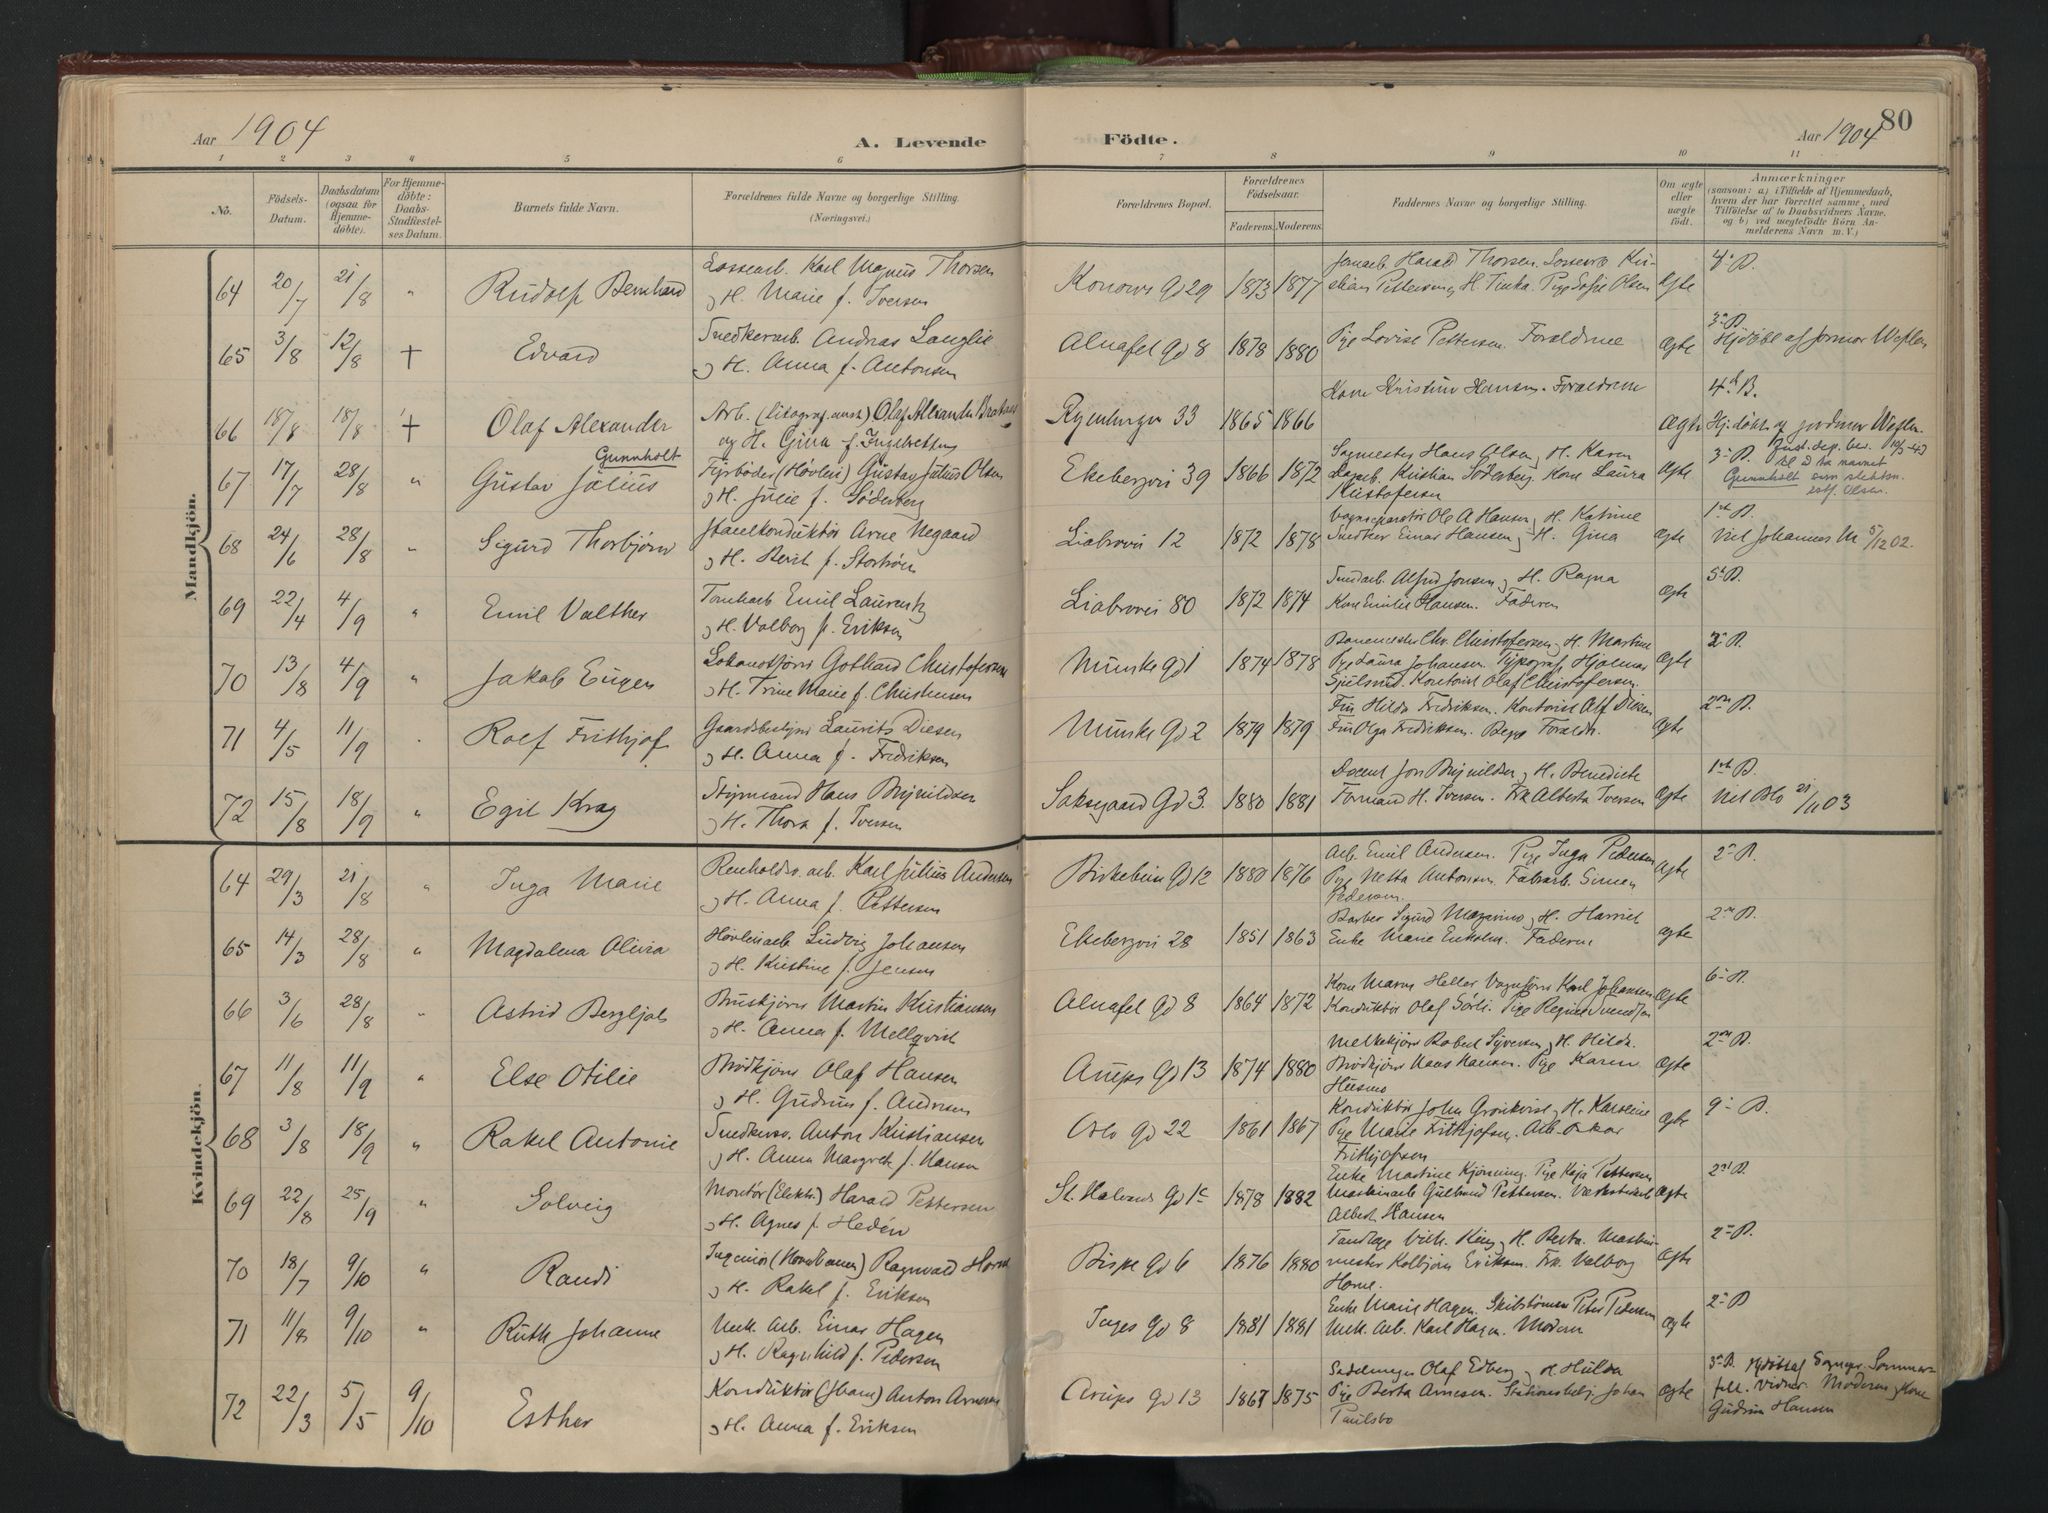 Aar 1904
A. Levende
Födte.
Aar 1904
80
1 2 3 4 5 6 7 8 9 10 11
No.
Födsels-
Datum.
Daabsdatum
(ogsaa for
Hjemme-
döbte).
For Hjemme-
döbte:
Daabs-
Stadfæstel-
ses Datum.
Barnets fulde Navn.
Forældrenes fulde Navne og borgerlige Stilling.
(Næringsvei.)
Forældrenes Bopæl.
Forældrenes
Födselsaar.
Faderens. Moderens.
Faddernes Navne og borgerlige Stilling.
Om ægte
eller
uægte
födt.
Anmærkninger
(saasom: a.) i Tilfælde af Hjemmedaab,
hvem der har forrettet samme, med
Tilföielse af to Daabsvidners Navne,
og b.) ved uægtefödte Börn An-
melderens Navn m. V.)
Mandkjön.
64 20/7 21/8 " Rudolf Bernhard
Lossearb. Karl Magnus Thorsen
og H. Marie f. Iversen
Konows Gd 29 1873 1877
Jernarb. Harald Thorsen. Lossearb. Kri-
stian Pettersen og H. Tinka. Pige Sofie Olsen
Ægte
4de B.
65 3/8 12/8 † Edvard
Snedkerarb. Andreas Langlie
og H. Anna f. Antonsen
Alnafel Gd 8 1878 1880
Pige Lovise Pettersen. Forældrene
Ægte
3die B.
Hjdöbt af Jormor Westlen
66 18/8 18/8 † Olaf Alexander
Arb. Olaf Alexander
og H. Gina f. Ingebretsen
Ryenbergn 33 1865 1866
Kone Kristine Hansen. Forældrene
Ægte
4de B.
Hj. döbt af jordmor Westlen
67 17/7 28/8 " Gustav Julius
Gunnholt
Fyrböder (Hövleri) Gustav Julius Olsen
og H. Julie f. Söderberg
Ekebergvei 39 1866 1872
Sagmester Hans Olsen og H. Karen
Kristian Söderberg. Kone Laura
Kristofersen
Ægte
3die B.
Just. dep. bev. 10/5-43
til å ta navnet
Gunnholt som slektsn.
istf. Olsen.
68 24/6 28/8 " Sigurd Thorbjörn
Arne Negaard
og H. Berit f.
Liabrovei 12 1872 1878
Vognreparatör Ole A Hansen og H. Katrine
Snedker Einar Hansen og H. Gina
Ægte
1ste B.
Viet Johannes M 5/12 02.
69 22/4 4/9 " Emil Valther
Tomtearb Emil Laurentz
og H. Valborg f. Eriksen
Liabrovei 80 1872 1874
Smedarb. Alfred Jonsen og H. Ragna
Kone Emilie Hansen. Faderen
Ægte
5te B.
70 13/8 4/9 " Jakob Eugen
Lokomotförer Gothard Christofersen
og H. Trine Marie f. Christensen
Munke gd 1 1874 1878
Banemester Chr. Christofersen og H. Martine
Pige Laura Johansen. Typograf Hjalmar
Sjulsrud. Kontorist Olaf Christofersen.
Ægte
2 B.
71 4/5 11/9 Rolf Frithjof
Gaardsbestyrer Laurits Diesen
og H. Anna f. Fredriksen
Munke Gd 2 1879 1879
Frk Hilda Fredriksen. Kontorist Alf Diesen
Frk Olga Fredriksen. Begge Forældr.
Ægte
2den B.
72 15/8 18/9 " Egil Krag
Styrmand Hans Brynildsen
og H. Thora f. Iversen
Saxegaard Gd 3. 1880 1881
Docent Jon Brynildsen og H. Benedicte
Formand H. Iversen. Frk Alberta Iversen
Ægte
1ste B.
Viet Oslo 21/11 03
Kvindekjön.
64 29/3 21/8 " Inga Marie
Renholds. arb. Karl Julius Andersen
og H. Anna f. Pettersen
Birkebein Gd 12 1880 1876
Arb. Emil Andersen. Pige Inga Pedersen
Pige Netta Antonsen. Fabrarb. Simen
Pedersen.
Ægte
2 B.
65 14/3 28/8 " Magdalena Olivia
Hövleriarb Ludvig Johansen
og H. Kristine f. Jensen
Ekebergvei 28 1851 1863
Barber Sigurd Magarino og H. Harriet
Enke Marie Enholm. Faderen
ægte
2den B.
66 3/6 28/8 " Astrid Bergljot
Bruskjörer Martin Kristiansen
og H. Anna f. Mellqvist
Alnafel Gd 8 1864 1872
Kone Maren Heller Vognförer Karl Johansen
Konduktör Olaf Sörli. Pige Regine Svendsen
Ægte
6te B.
67 11/8 11/9 " Else Otilie
Brödkjörer Olaf Hansen
og H. Gudrun f. Andresen
Arups Gd 13 1874 1880
Melkekjörer Robert Syversen og H. Hilda.
Brödkjörer Hans Hansen. Pige Karen
Husmo
Ægte
2den B.
68 3/8 18/9 " Rakel Antonie
Snedkersv. Anton Kristiansen
og H. Anna Margrete f. Hansen
Oslo Gd 22 1861 1867
Konduktör John Grönkvist og H. Karoline
Pige Marie Frithjofsen. Arb. Oskar
Frithjofsen
Ægte
9de B.
69 22/8 25/9 " Solveig
Montör (Elektr.) Harald Pettersen
og H. Agnes f. Hedén
St. Halvards Gd 1c 1878 1882
Enke Martine Kjönning Pige Kaja Pettersen
Maskinarb Gulbrand Pettersen. Værkstedarb
Albert Hansen
Ægte
2den B.
70 18/7 9/10 " Randi
Ingeniör (Hovedbanen) Ragnvald Horne
og H. Rakel f. Eriksen
Bispe Gd 6 1876 1880
Tandlæge Vilh. King og H. Berta. Maskin-
mester Kolbjörn Eriksen. Frk. Valborg
Horne.
Ægte
2den B.
71 11/8 9/10 " Ruth Johanne
Mek. Arb. Einar Hagen
og H. Ragnhild f. Pedersen
Inges Gd 8 1881 1881
Enke Marie Hagen. Skibstömmer Peter Pedersen
Mek. Arb. Karl Hagen. Moderen
Ægte
2den B
72 22/3 5/5 9/10 Esther
Konduktör Anton Arnesen
og H. Anna f. Eriksen
Arups Gd 13 1867 1875
Sadelmager Olaf Edberg og H. Hulda
Pige Berta Arnesen. Stationsbetj. Johan
Paulsbo
Ægte
3die B. Hjdöbt af Sognepr. Sommer-
felt. Vidner Moderen og Kone
Gudrun Hansen